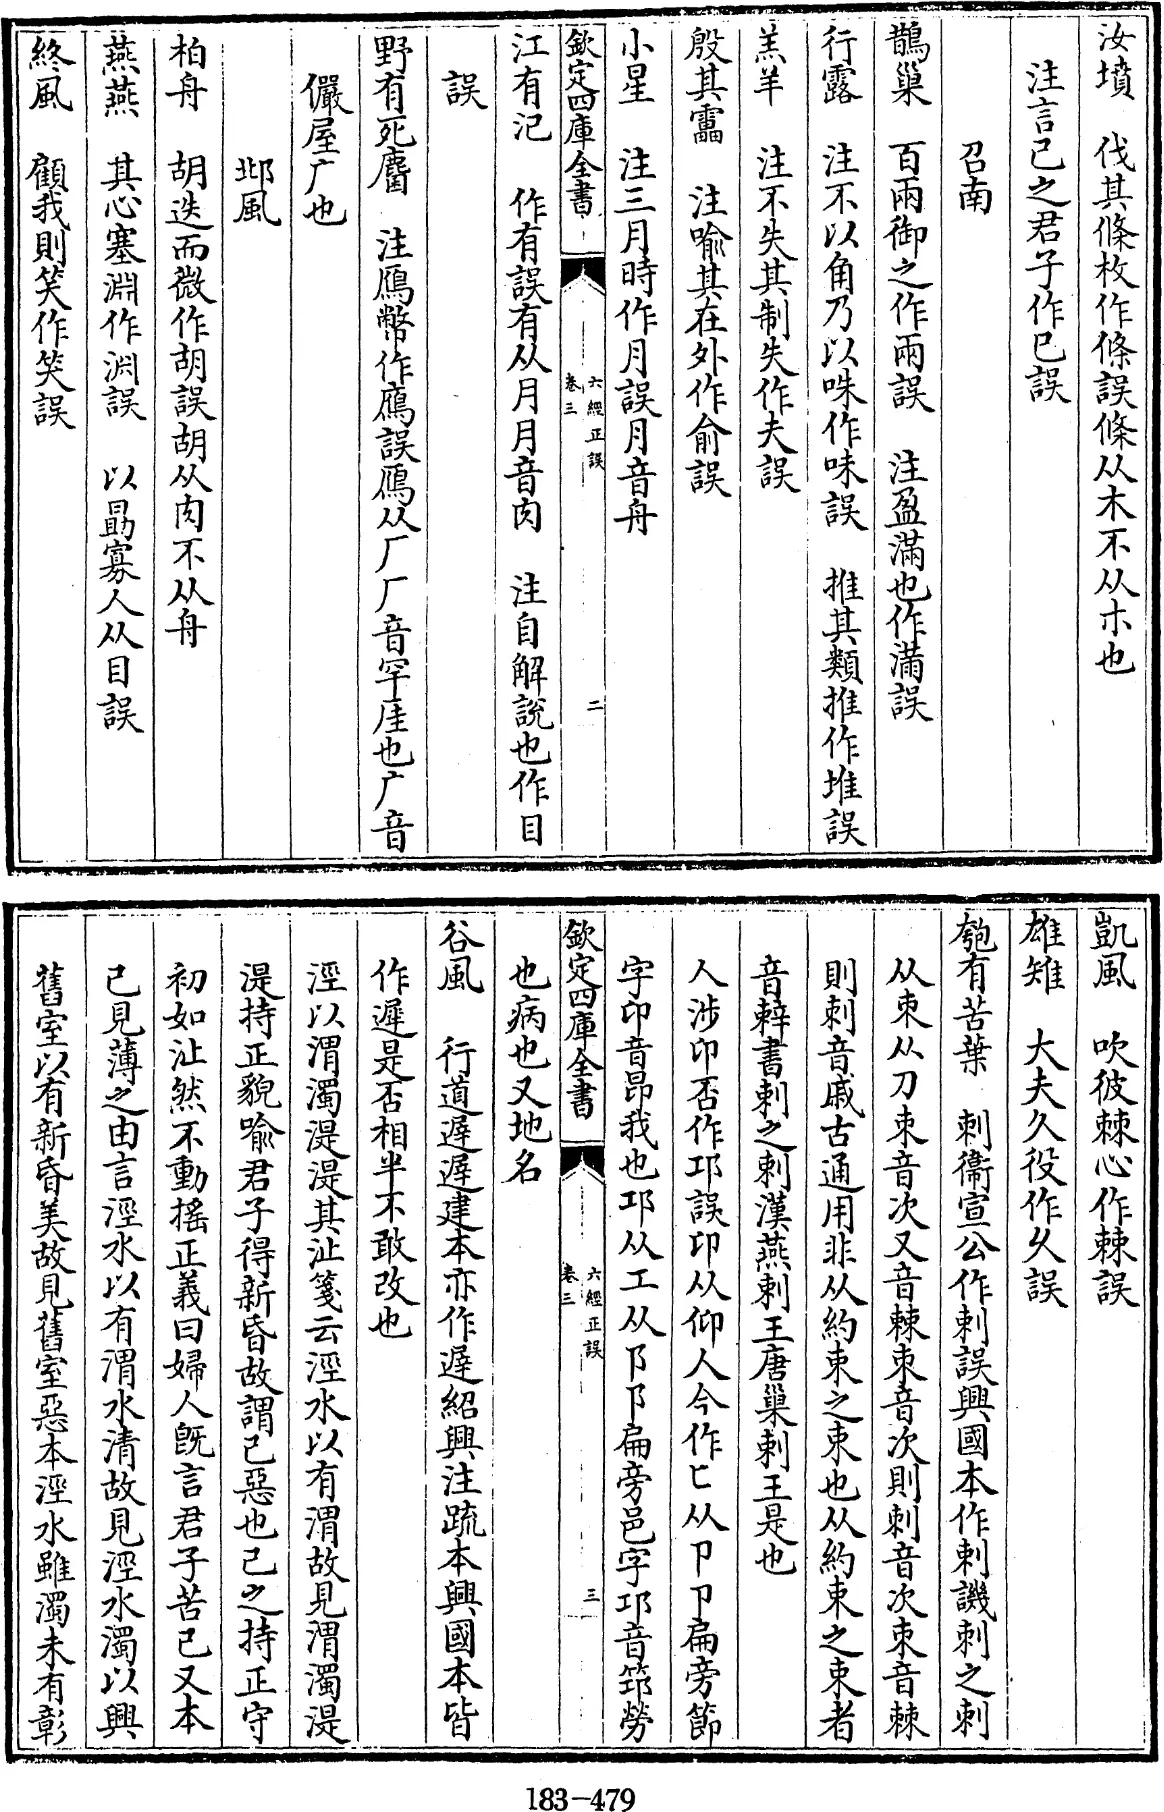 汝墳　伐其條枚作條誤條从木不从朩也
注言己之君子作巳誤
召南
鵲巢　百兩御之作兩誤　注盈滿也作滿誤
行露　注不以角乃以咮作味誤　推其類推作堆誤
羔羊　注不失其制失作夫誤
殷其靁　注喻其在外作俞誤
小星　注三月時作月誤月音舟
欽定四庫全書
六經正誤
卷三
二
江有汜　作有誤有从月月音肉　注自解說也作目
誤
野有死麕　注鴈幣作鴈誤鴈从厂厂音罕厓也广音
儼屋广也
邶風
柏舟　胡迭而微作胡誤胡从肉不从舟
燕燕　其心塞淵作淵誤　以勗寡人从目誤
終風　顧我則笑作笑誤
凱風　吹彼棘心作棘誤
雄雉　大夫久役作乆誤
匏有苦葉　刺衞宣公作刺誤興國本作刺譏刺之刺
从朿从刀朿音次又音棘朿音次則刺音次朿音棘
則刺音戚古通用非从約束之束也从約束之束者
音辢書刺之剌漢燕剌王唐巢剌王是也
人涉卬否作邛誤卬从仰人今作匕从卩卩扁旁節
字卬音昂我也邛从工从阝阝扁旁邑字邛音筇勞
欽定四庫全書
六經正誤
卷三
三
也病也又地名
谷風　行道遲遲建本亦作遲紹興注疏本興國本皆
作遲是否相半不敢改也
涇以渭濁湜湜其沚箋云涇水以有渭故見渭濁湜
湜持正貌喻君子得新昏故謂己惡也己之持正守
初如沚然不動搖正義曰婦人旣言君子苦己又本
己見薄之由言涇水以有渭水清故見涇水濁以興
舊室以有新昏美故見舊室惡本涇水雖濁未有彰
183-479